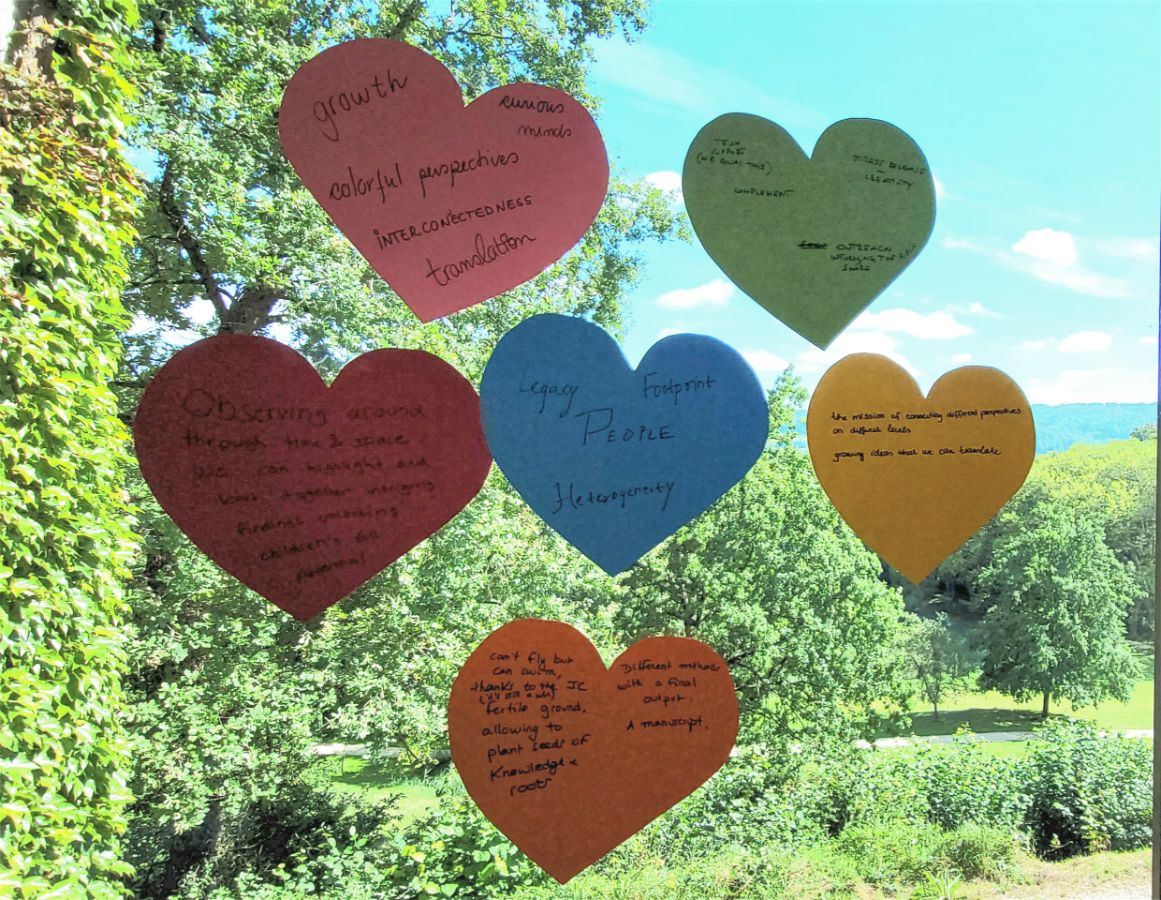 growth
curious
minds
colorful perspectives
INTERCONECTEDNESS
translation
TEAM
SUPPORT
(WE EQUAL THIS)
COMPLEMENT
STRESS RELEASE
CREATIVITY
OUTREACH
Observing around
through time & space
We can highlight and
together intriguing
findings unlocking
children's full
potential
Legacy
Footprint
PEOPLE
Heterogeneity
the mission of connecting different perspectives
on different levels
growing ideas that we can translate
can't fly but
can swim,
thanks to the JC
fertile ground,
allowing to
plant seeds of
Knowledge &
roots
Different methods
with a final
output.
A manuscript.